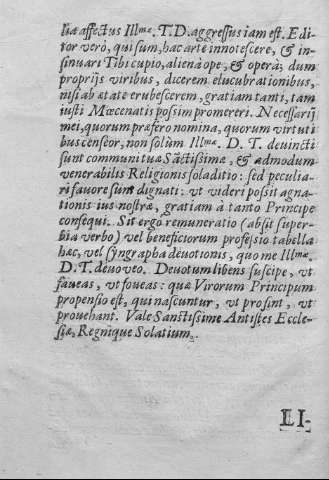 liæ affectus Ill.mæ T. D. aggressus iam est. Edi-
tor verò, qui sum, hac arte innotescere, & in-
sinuari Tibi cupio, aliena ope, & opera; dum
proprijs viribus, dicerem elucubrationibus,
nisi ab ætate erubescerem, gratiam tanti, tam
iusti Mœcenatis possim promereri. Necessarij
mei, quorum præfero nomina, quorum virtuti
bus censeor, non solùm Ill.mæ. D. T. deuincti
sunt communi tuæ Sāctissimæ, & admodum
venerabilis Religionis soladitio: sed peculia-
ri fauore sunt dignati: vt videri possit agna-
tionis ius nostræ, gratiam à tanto Principe
consequi. Sit ergo remuneratio (absit super-
bia verbo) vel beneficiorum professio tabella
hæc, vel syngrapha deuotionis, quo me Ill.mæ.
D. T. deuoveo. Deuotum libens suscipe, vt
faueas, vt foueas: quæ Virorum Principum
propensio est, qui nascuntur, vt prosint, vt
prouehant. Vale Sanctissime Antistes Eccle-
siæ, Regnique Solatium.
LI-